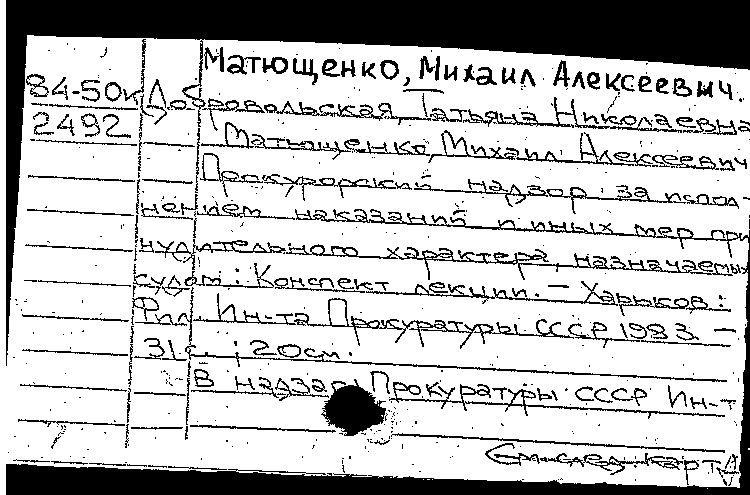 Матющенко, Михаил Алексеевич.
84-50к Добровольская, Татьяна Николаевна
2492 Матющенко, Михаил Алексеевич
Прокурорский надзор за испол-
нением наказаний и иных мер при
нудительного характера, назначаемых
судом: Конспект лекции. – Харьков:
Фил. Ин-та Прокуратуры СССР, 1983. –
31 с.; 20 см.
В надзаг: Прокуратуры СССР, Ин-т
См. след. карт.